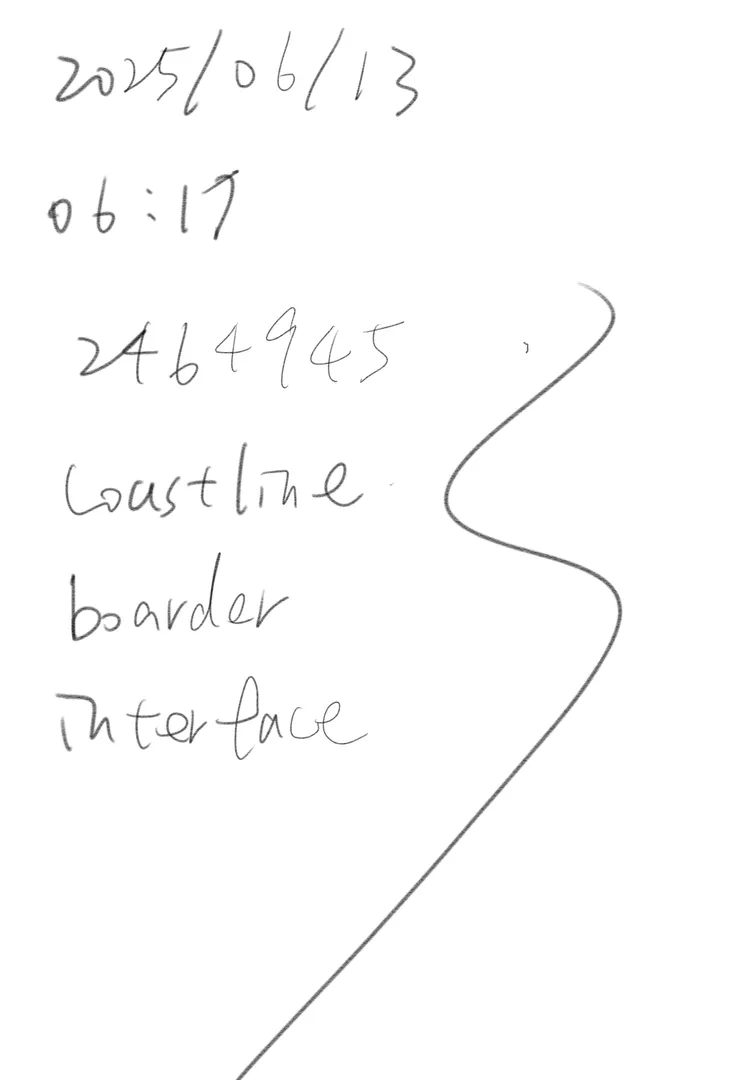 2025/06/13
06:17
2464945
coastline
boarder
interface